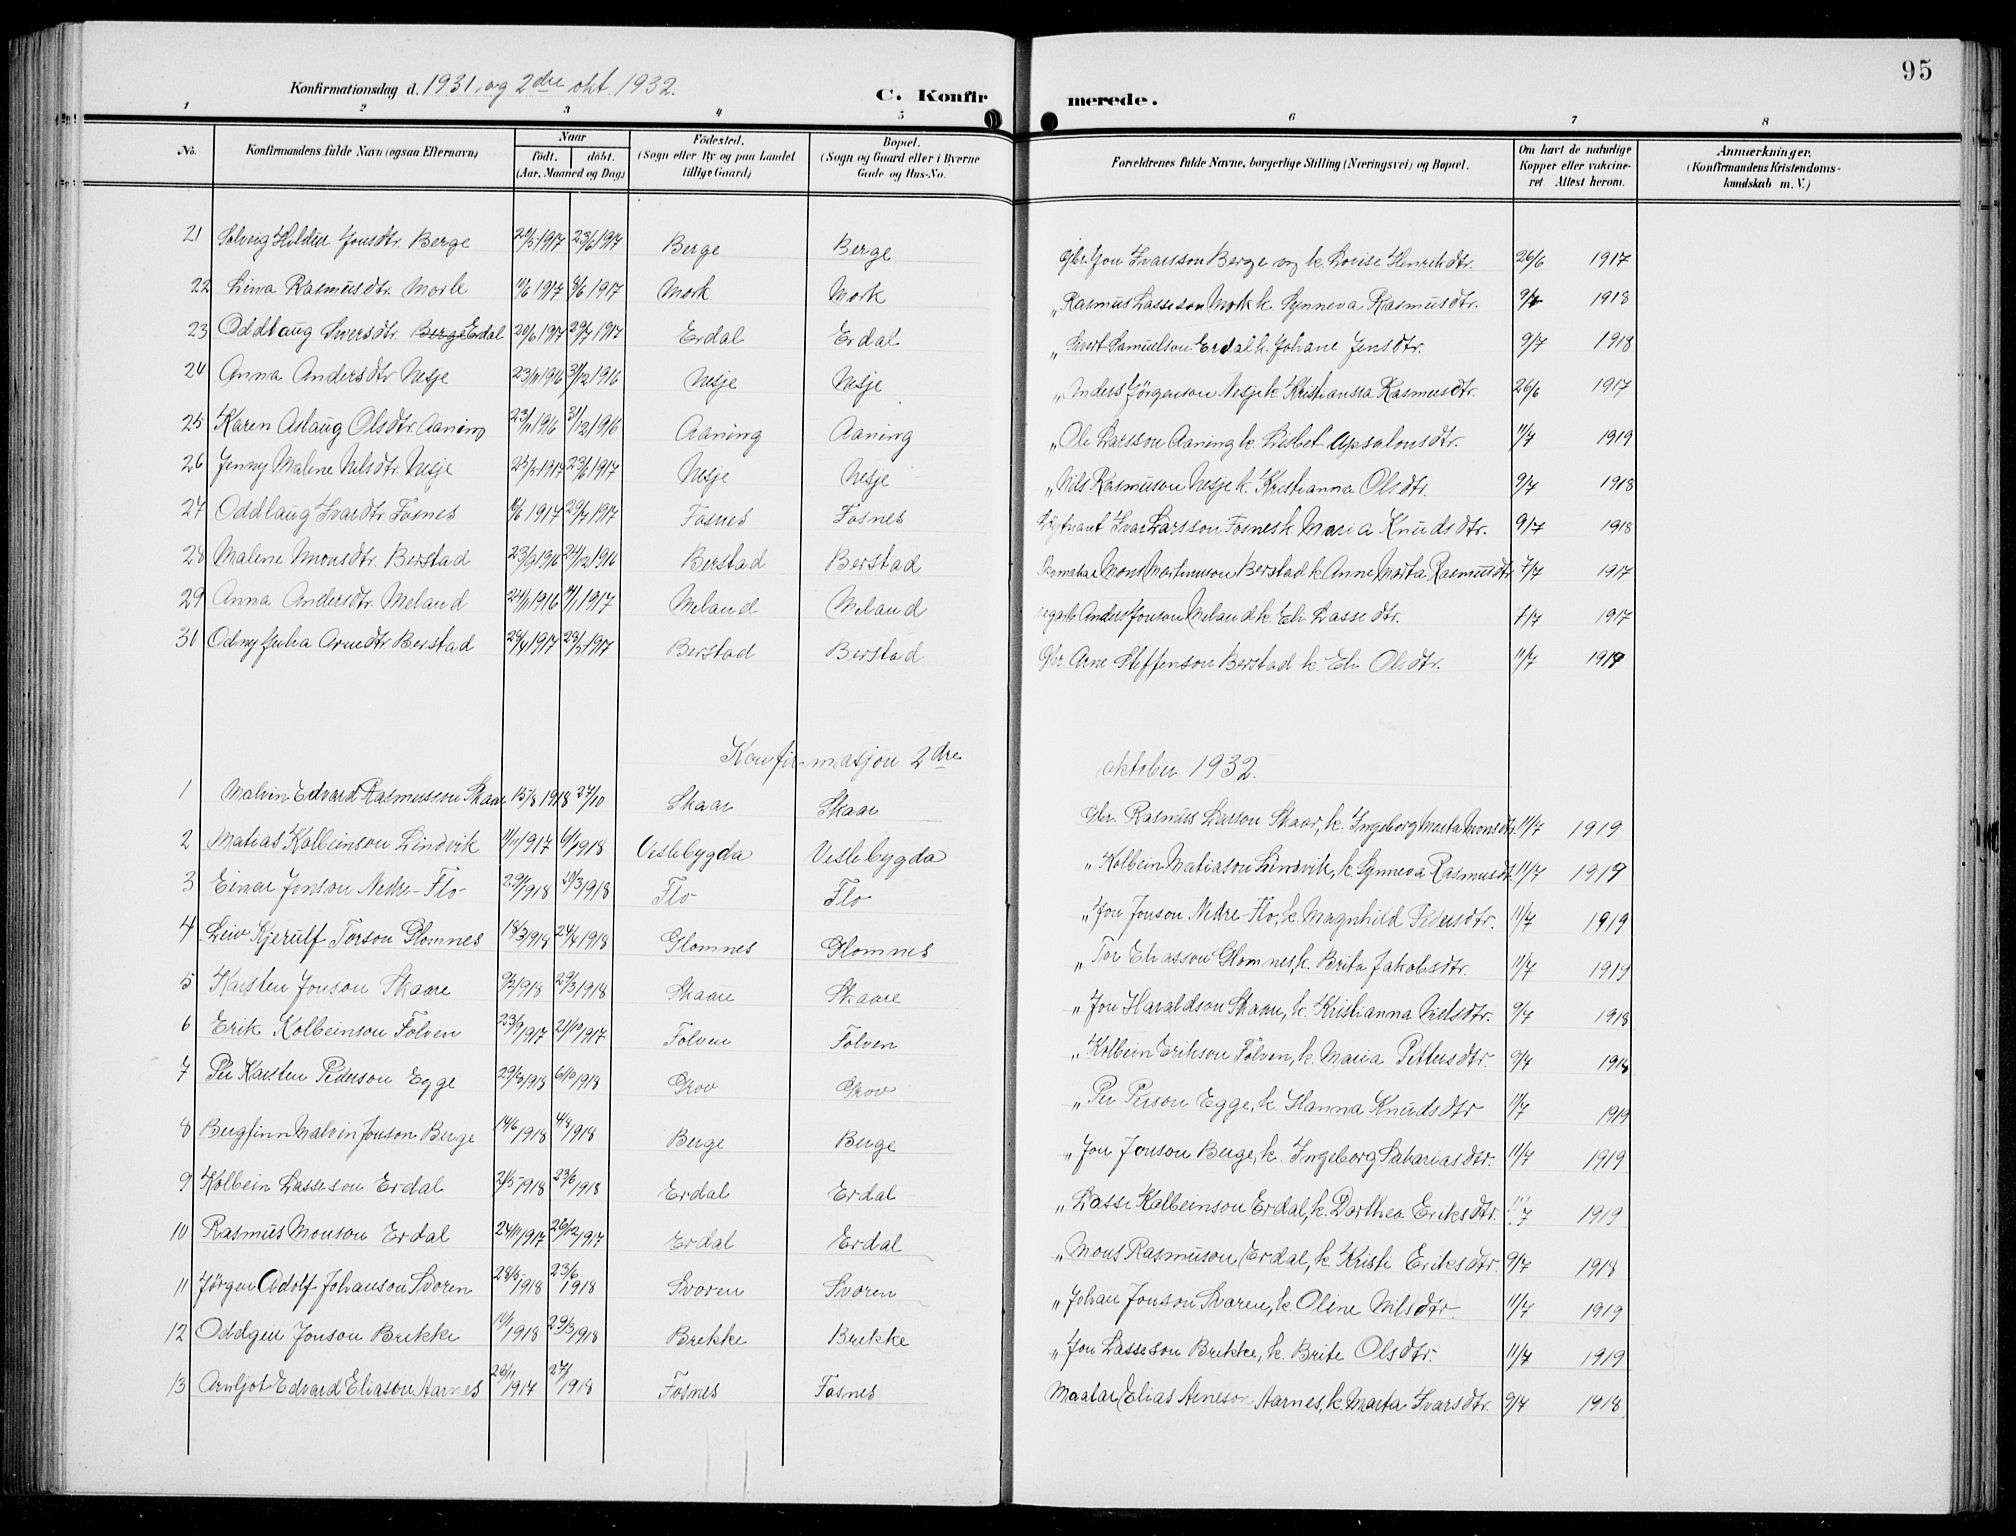 95
Konfirmationsdag d. 1931, og 2dre okt. 1932.
C. Konfirmerede.
1 2 3 4 5 6 7 8
No. Konfirmandens fulde Navn (ogsaa Efternavn) Naar födt. döbt. (Aar, Maaned og Dag) Födested. (Sogn eller By og paa Landet tillige Gaard) Bopæl. (Sogn og Gaard eller i Byerne Gade og Hus-No. Forældrenes fulde Navne, borgerlige Stilling (Næringsvei) og Bopæl. Om havt de naturlige Kopper eller vakcineret Attest herom. Anmærkninger. (Konfirmandens Kristendomskundskab m. V.)
21 Solveig Hildur Jonsdtr. Berge 20/5 1917 23/6 1917 Berge Berge Gbr. Jon Ivarsson Berge og k. Lovise Henrikdtr. 26/6 1917
22 Lina Rasmusdtr. Mork 11/6 1917 8/6 1917 Mork Mork " Rasmus Lasseson Mork k. Synneva Rasmusdtr. 9/7 1918
23 Oddlaug Siversdtr. Berge Erdal 20/6 1917 29/7 1917 Erdal Erdal " Sivert Samuelson Erdal k. Johane Jensdtr. 9/7 1918
24 Anna Andersdtr Nesje 23/11 1916 31/12 1916 Nesje Nesje " Anders Jörgenson Nesje k. Kristianna Rasmusdtr. 26/6 1917
25 Karen Aslaug Olsdtr. Aaning 23/11 1916 31/12 1916 Aaning Aaning " Ole Larsson Aaning k. Lisbet Apsalonsdtr. 11/7 1919
26 Jenny Malene Nilsdtr. Nesje 25/5 1917 23/6 1917 Nesje Nesje " Nils Rasmuson Nesje k. Kristianna Olsdtr. 9/7 1918
27 Oddlaug Ivardtr Fosnes 10/6 1917 29/7 1917 Fosnes Fosnes Löytnant Ivar Larsson Fosnes k Maria Knudsdtr. 9/7 1918
28 Malene Monsdtr. Berstad 23/9 1916 24/12 1916 Berstad Berstad Skomakar Mons Martinusson Berstad k. Anne Marta Rasmusdtr 7/7 1917
29 Anna Andersdtr. Meland 24/11 1916 14/1 1917 Meland Meland Anders Jonson Meland k. Eli Lassedtr. 7/7 1917
31 Odny Julia Arnedtr Berstad 28/4 1917 28/5 1917 Berstad Berstad Gbr. Arne Steffenson Berstad k. Eli Olsdtr. 11/7 1919
Konfirmasjon 2dre oktober 1932.
1 Malvin Edvard Rasmusson Skaar 15/8 1918 27/10 Skaar Skaar Gbr. Rasmus Larson Skaar, k. Ingeborg Marta Monsdtr. 11/7 1919
2 Matias Kolbeinson Lindvik 11/11 1917 6/1 1918 Veslebygda Veslebygda " Kolbein Matiason Lindvik, k. Synneva Rasmusdt. 11/7 1919
3 Einar Jonson Nedre-Flo 29/1 1918 10/3 1918 Flo Flo " Jon Jonson Nedre-Flo, k. Magnhild Pedersdtr. 11/7 1919
4 Leiv Kjerulf Torson Glomnes 18/3 1918 24/4 1918 Glomnes Glomnes " Tor Eliasson Glomnes, k. Brita Jakobsdtr. 11/7 1919
5 Karsten Jonson Skaare 9/2 1918 29/3 1918 Skaare Skaare " Jon Haraldson Skaare, k. Kristianna Nilsdtr. 9/7 1918
6 Erik Kolbeinson Folven 23/9 1917 21/10 1917 Folven Folven " Kolbein Erikson Folven, k. Maria Pettersdtr. 9/7 1918
7 Per Karsten Pederson Egge 29/8 1918 6/10 1918 Grov Grov " Per Person Egge, k. Hanna Knudsdtr 11/7 1919
8 Bergfinn Malvin Jonson Berge 14/6 1918 4/8 1918 Berge Berge " Jon Jonson Berge, k. Ingeborg Sakariasdtr. 11/7 1919
9 Kolbein Lasseson Erdal 2/5 1918 23/6 1918 Erdal Erdal " Lasse Kolbeinson Erdal, k. Darthea Eriksdtr. 11/7 1919
10 Rasmus Monson Erdal 24/11 1917 26/12 1917 Erdal Erdal " Mons Rasmuson Erdal, k. Kristi Eriksdtr. 9/7 1918
11 Jørgen Adolf Johanson Svoren 28/5 1918 23/6 1918 Svoren Svoren " Johan Jonson Svaren, k. Oline Nilsdtr. 11/7 1919
12 Oddgeir Jonson Brekke 14/1 1918 29/3 1918 Brekke Brekke " Jon Lasseson Brekke, k. Brite Olsdtr. 11/7 1919
13 Arnljot Edvard Eliason Aarnes 26/11 1917 27/1 1918 Fosnes Fosnes Maalar Elias Arneson Aarnes, k. Marta Ivarsdtr. 9/7 1918